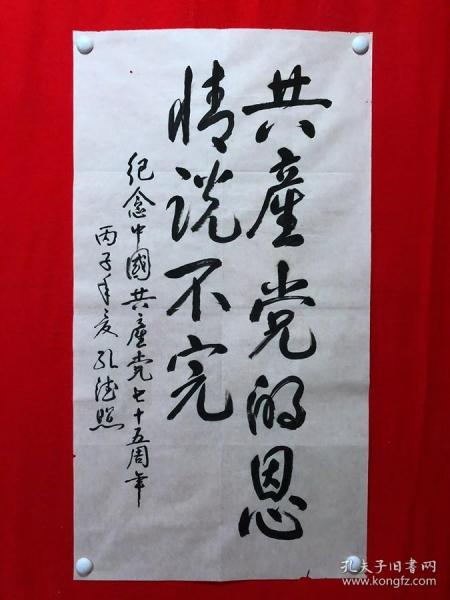 共產党的恩
情说不完
纪念中國共產党七十五周年
丙子年夏 孔德照
孔夫子旧书网
www.kongfz.com